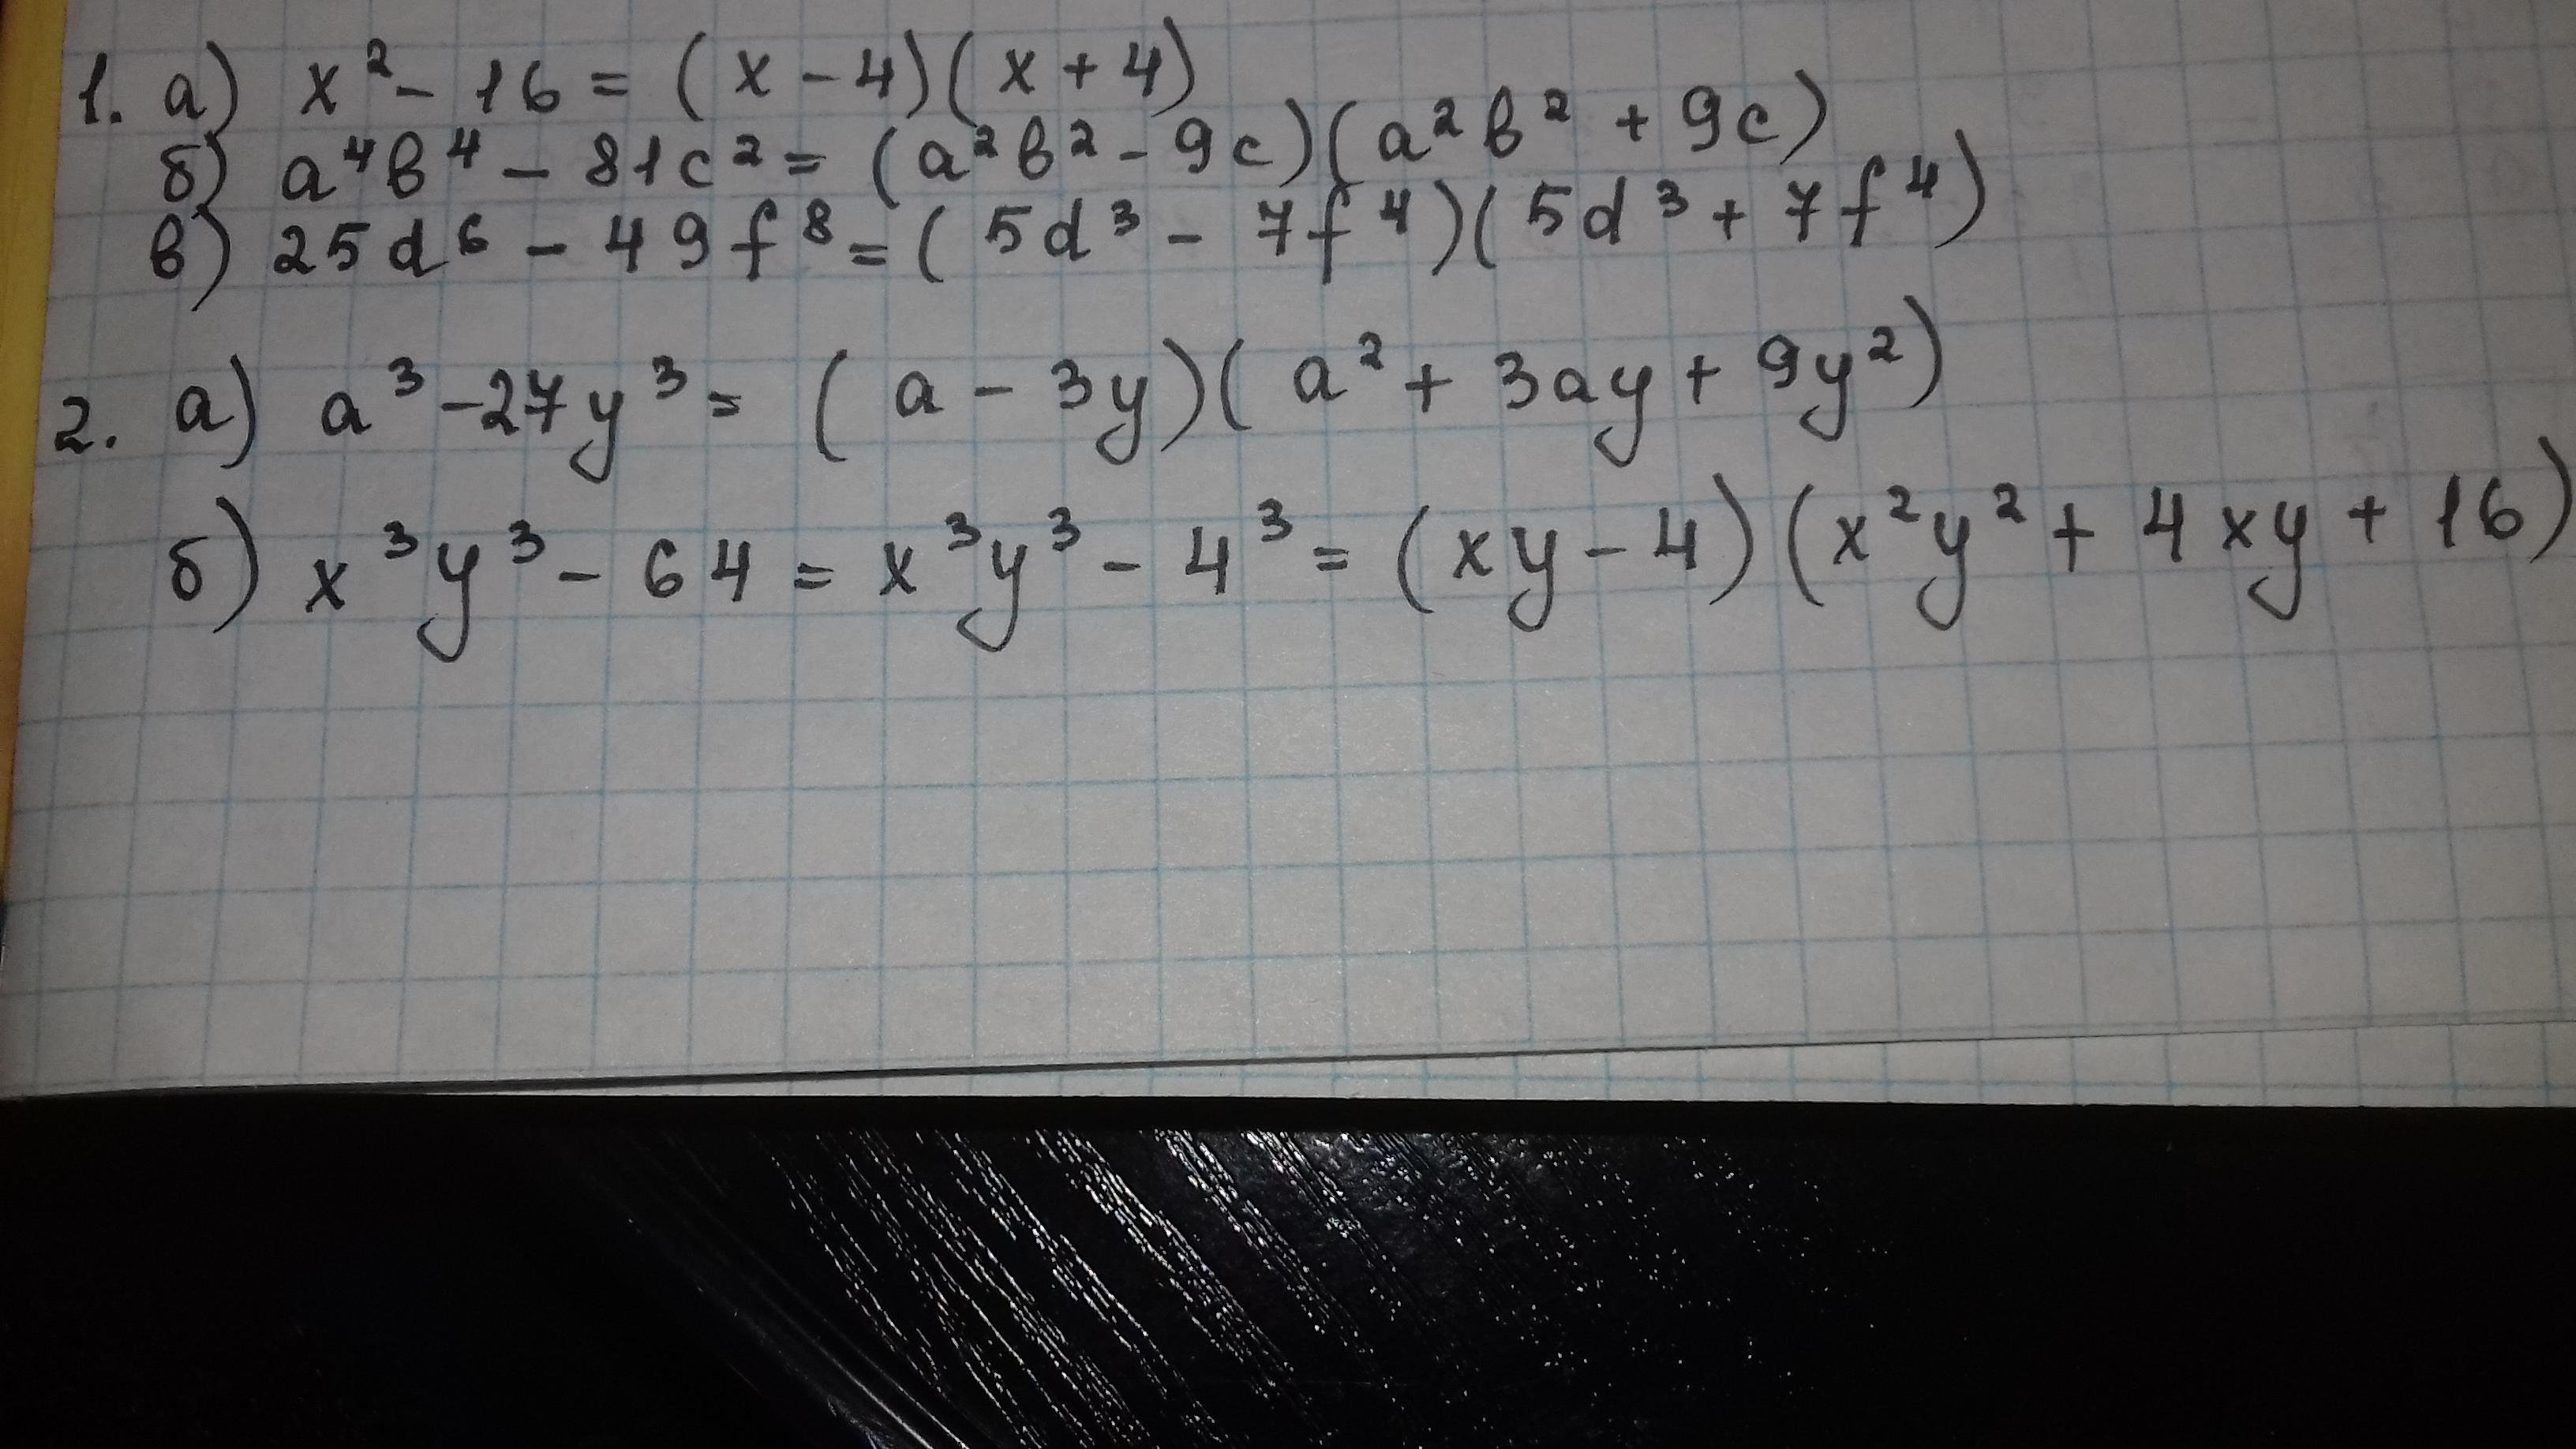 1. а) x² - 16 = (x - 4)(x + 4)
б) a⁴b⁴ - 81c² = (a²b² - 9c)(a²b² + 9c)
в) 25d⁶ - 49f⁸ = (5d³ - 7f⁴)(5d³ + 7f⁴)
2. а) a³ - 27y³ = (a - 3y)(a² + 3ay + 9y²)
б) x³y³ - 64 = x³y³ - 4³ = (xy - 4)(x²y² + 4xy + 16)